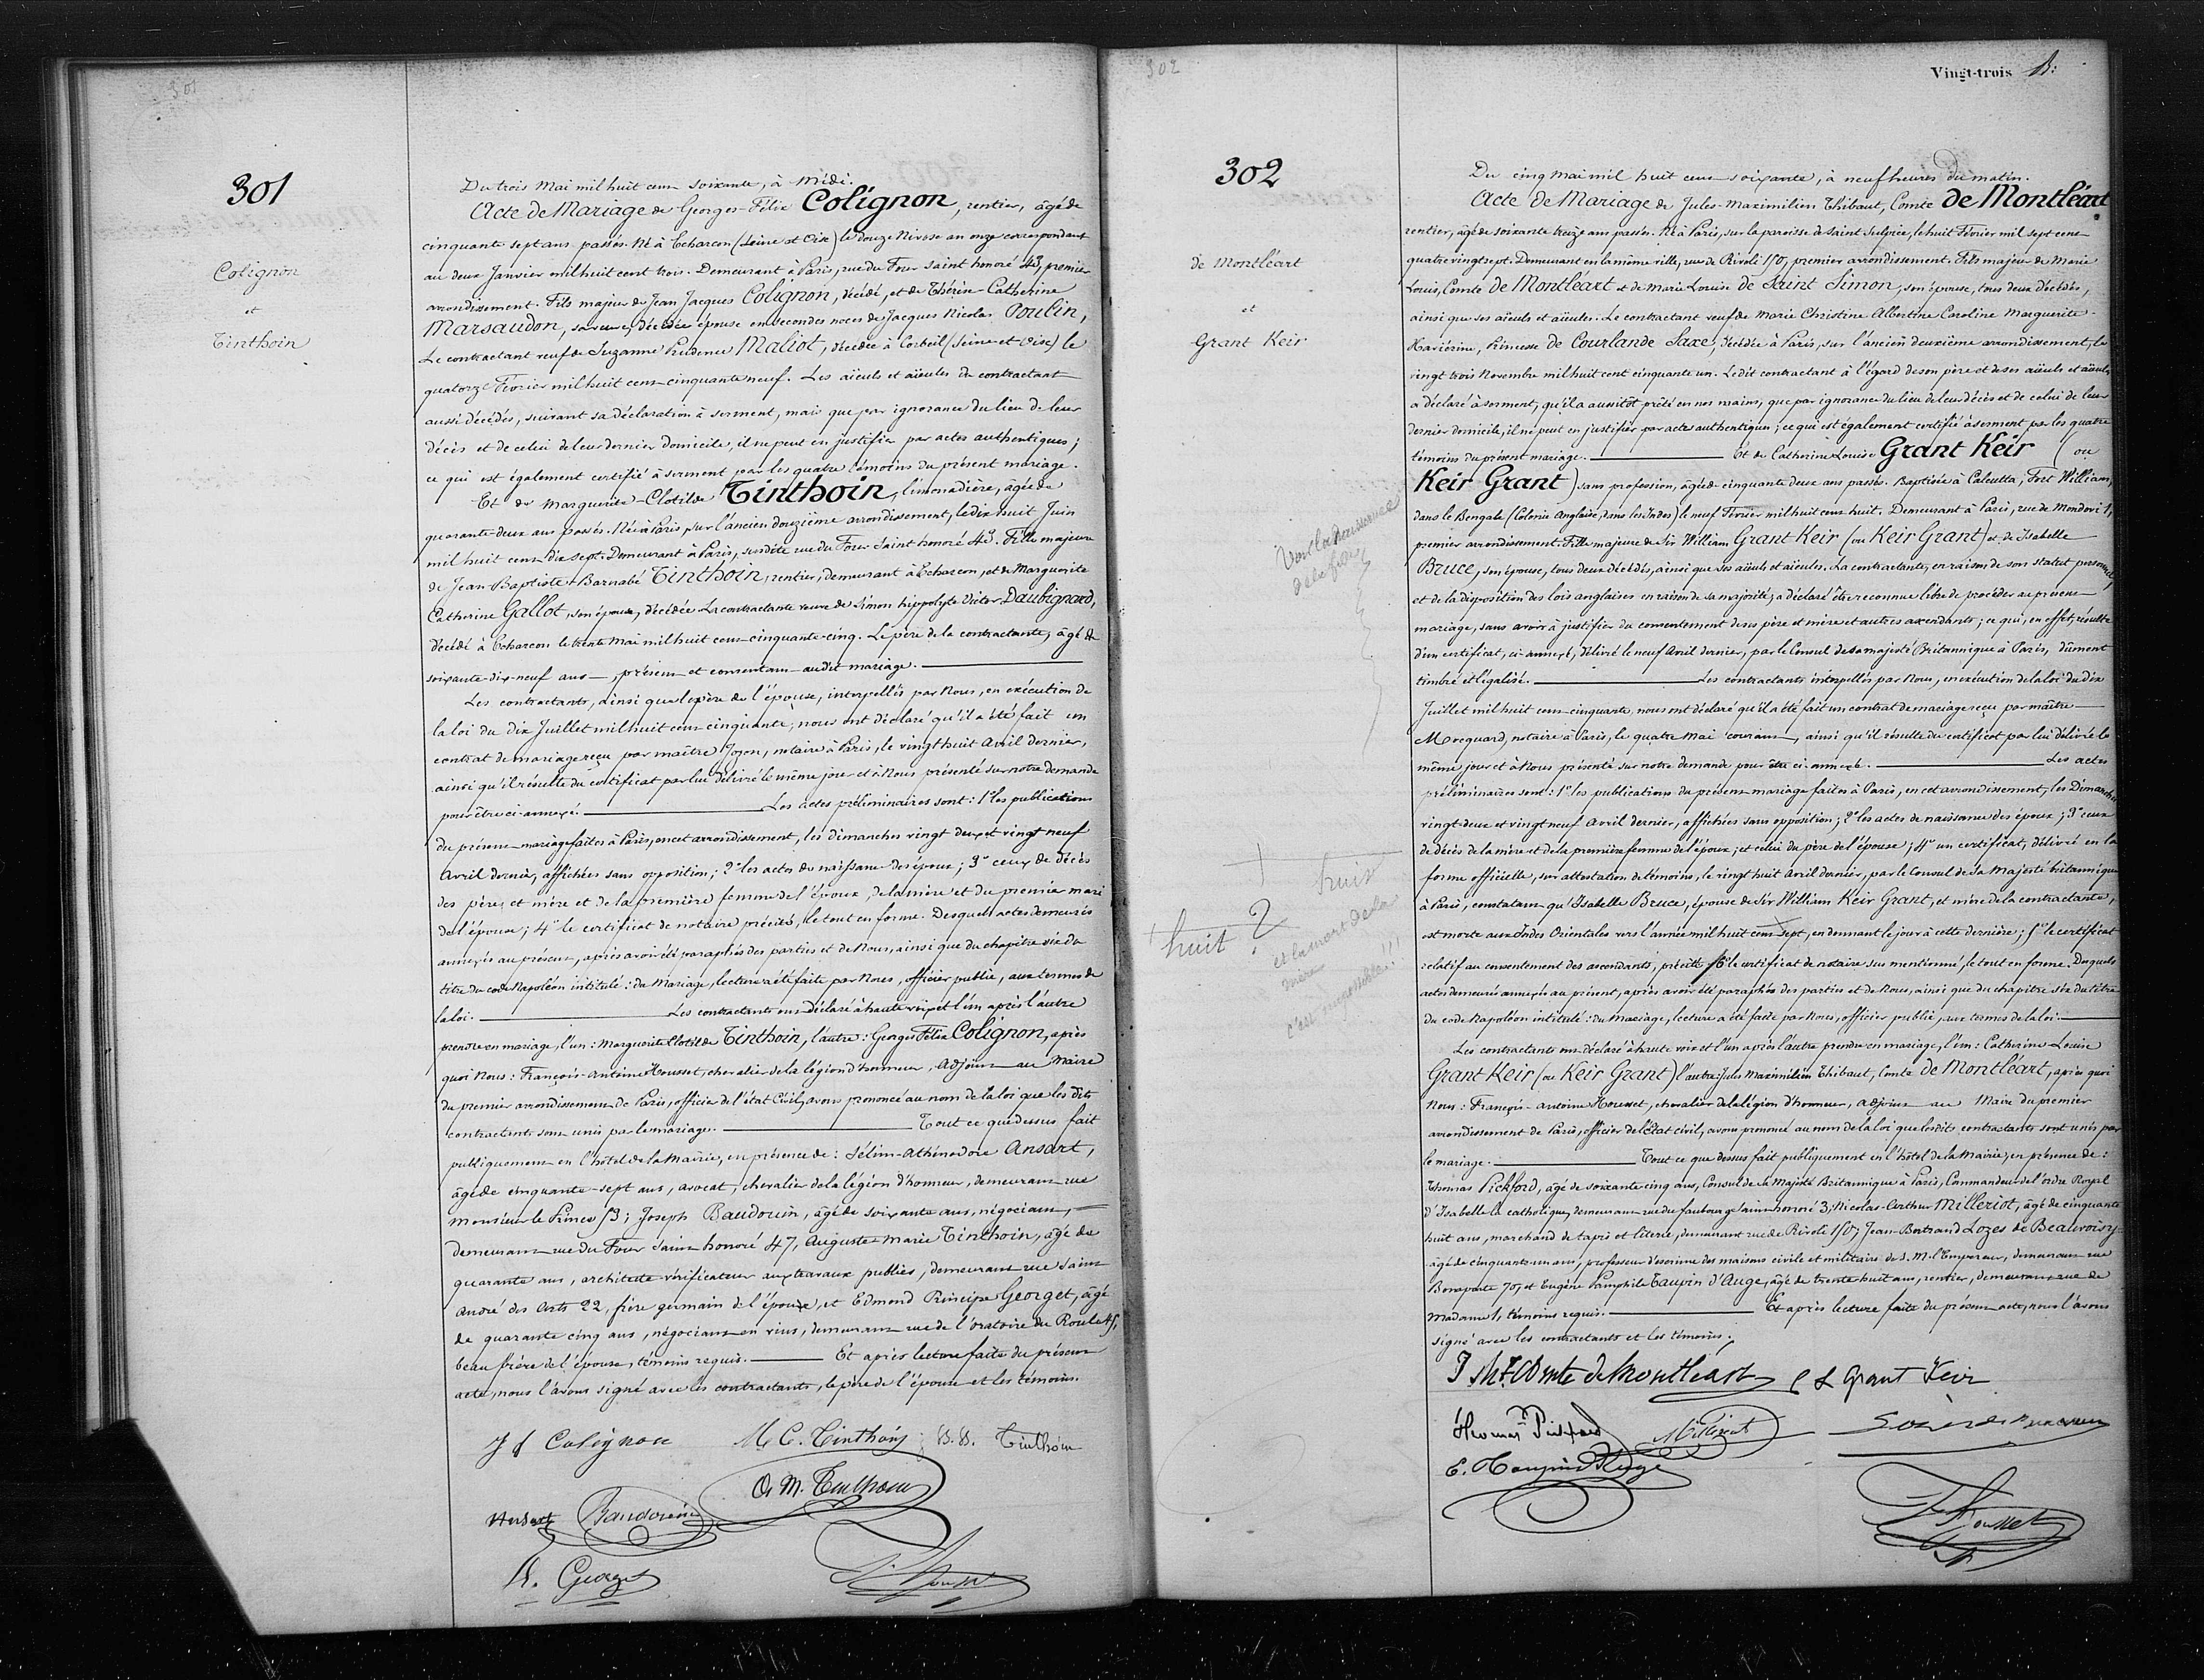 301
301
Colignon
et
Tinthoin
Du trois Mai mil huit cent soixante, à midi.
Acte de Mariage de Georges-Félix Colignon, rentier, âgé de
cinquante sept ans passés. Né à Echarcon (Seine et Oise) le douze Nivose an onze correspondant
au deux Janvier mil huit cent trois. Demeurant à Paris, rue du Four Saint honoré 43, premier
arrondissement. Fils majeur de Jean Jacques Colignon, décédé, et de Thérèse-Catherine
Marsaudon, sa veuve, décédée épouse en secondes noces de Jacques Nicolas Poulin,
Le contractant veuf de Suzanne Prudence Maliot, décédée à Corbeil (Seine et Oise) le
quatorze Février mil huit cent cinquante neuf. Les aïeuls et aïeules du contractant
aussi décédés, suivant sa déclaration à serment, mais que par ignorance du lieu de leur
décès et de celui de leur dernier domicile, il ne peut en justifier par actes authentiques;
ce qui est également certifié à serment par les quatre témoins du présent mariage.
Et de Marguerite-Clotilde Tinthoin, limonadière, âgée de
quarante deux ans passés. Née à Paris, sur l'ancien douzième arrondissement, le dix huit Juin
mil huit cent dix sept. Demeurant à Paris, susdite rue du Four Saint honoré 43. Fille majeure
de Jean-Baptiste-Barnabé Tinthoin, rentier, demeurant à Echarcon, et de Marguerite
Catherine Gallot, son épouse, décédée. La contractante veuve de Simon hippolyte Victor Daubignard,
décédé à Echarcon le trente Mai mil huit cent cinquante-cinq. Le père de la contractante, âgé de
soixante-dix-neuf ans, présent et consentant audit mariage.
Les contractants, ainsi que le père de l'épouse, interpellés par Nous, en exécution de
la loi du dix Juillet mil huit cent cinquante, nous ont déclaré qu'il a été fait un
contrat de mariage reçu par maître Jozon, notaire à Paris, le vingt huit Avril dernier,
ainsi qu'il résulte du certificat par lui délivré le même jour et à Nous présenté sur notre demande
pour être ci-annexé. Les actes préliminaires sont : 1° les publications
du présent mariage faites à Paris, en cet arrondissement, les dimanches vingt deux et vingt neuf
Avril dernier, affichées sans opposition; 2° les actes de naissance des époux; 3° ceux de décès
des père et mère et de la première femme de l'époux, de la mère et du premier mari
de l'épouse; 4° le certificat de notaire précité, le tout en forme. Desquels actes demeurés
annexés au présent, après avoir été paraphés des parties et de Nous, ainsi que du chapitre six du
titre du code Napoléon intitulé : du Mariage, lecture a été faite par Nous, officier public, aux termes de
la loi. Les contractants ont déclaré à haute voix et l'un après l'autre
prendre en mariage, l'un : Marguerite Clotilde Tinthoin, l'autre : Georges Félix Colignon, après
quoi Nous : François-Antoine Housset, chevalier de la légion d'honneur, Adjoint au Maire
du premier arrondissement de Paris, officier de l'état Civil, avons prononcé au nom de la loi que les dits
contractants sont unis par le mariage. Tout ce que dessus fait
publiquement en l'hôtel de la Mairie, en présence de : Sélim-Athénodore Ansart,
âgé de cinquante-sept ans, avocat, chevalier de la légion d'honneur, demeurant rue
Monsieur le Prince 53; Joseph Baudouin, âgé de soixante ans, négociant,
demeurant rue du Four Saint honoré 47, Auguste-Marie Tinthoin, âgé de
quarante ans, architecte vérificateur aux travaux publics, demeurant rue Saint
André des Arts 22, frère germain de l'épouse, et Edmond Principe Georget, âgé
de quarante cinq ans, négociant en vins, demeurant rue de l'oratoire du Roule 45,
beau frère de l'épouse, témoins requis. Et après lecture faite du présent
acte, nous l'avons signé avec les contractants, le père de l'épouse et les témoins.
Colignon M C. Tinthoin J. B. B. Tinthoin
A. M. Tinthoin
Ansart Baudouin
Georget Housset
302
Vingt-trois
302
de Montléart
et
Grant Keir
Voir la naissance
de la fille
huit
huit ?
et la mort de la
mère
c'est impossible !!!
Du cinq Mai mil huit cent soixante, à neuf heures du matin.
Acte de Mariage de Jules-Maximilien Thibaut, Comte de Montléart
rentier, âgé de soixante treize ans passés. Né à Paris, sur la paroisse de Saint Sulpice, le huit Février mil sept cent
quatre vingt sept. Demeurant en la même ville, rue de Rivoli 150, premier arrondissement. Fils majeur de Marie
Louis, Comte de Montléart et de Marie Louise de Saint Simon, son épouse, tous deux décédés,
ainsi que ses aïeuls et aïeules. Le contractant veuf de Marie Christine Albertine Caroline Marguerite-
Xaviérine, Princesse de Courlande Saxe, décédée à Paris, sur l'ancien deuxième arrondissement, le
vingt trois Novembre mil huit cent cinquante un. Ledit contractant à l'égard de son père et de ses aïeuls et aïeules
a déclaré à serment, qu'il a aussitôt prêté en nos mains, que par ignorance du lieu de leur décès et de celui de leur
dernier domicile, il ne peut en justifier par actes authentiques; ce qui est également certifié à serment par les quatre
témoins du présent mariage. Et de Catherine Louise Grant Keir (ou
Keir Grant) sans profession, âgée de cinquante deux ans passés. Baptisée à Calcutta, Fort William,
dans le Bengale (Colonie Anglaise, dans les Indes) le neuf Février mil huit cent huit. Demeurant à Paris, rue de Mondovi 1,
premier arrondissement. Fille majeure de Sir William Grant Keir (ou Keir Grant) et de Isabelle
Bruce, son épouse, tous deux décédés, ainsi que ses aïeuls et aïeules. La contractante, en raison de son statut personnel,
et de la disposition des lois anglaises en raison de sa majorité, a déclaré être reconnue libre de procéder au présent
mariage, sans avoir à justifier du consentement de ses père et mère et autres ascendants; ce qui, en effet, résulte
d'un certificat, ci-annexé, délivré le neuf Avril dernier, par le Consul de sa majesté Britannique à Paris, dûment
timbré et légalisé. Les contractants interpellés par Nous, en exécution de la loi du dix
Juillet mil huit cent cinquante, nous ont déclaré qu'il a été fait un contrat de mariage reçu par maître
Mocquard, notaire à Paris, le quatre Mai courant, ainsi qu'il résulte du certificat par lui délivré le
même jour et à Nous présenté sur notre demande pour être ci-annexé. Les actes
préliminaires sont : 1° les publications du présent mariage faites à Paris, en cet arrondissement, les Dimanches
vingt-deux et vingt neuf Avril dernier, affichées sans opposition; 2° les actes de naissance des époux; 3° ceux
de décès de la mère et de la première femme de l'époux, et celui du père de l'épouse; 4° un certificat, délivré en la
forme officielle, sur attestation de témoins, le vingt huit Avril dernier, par le Consul de Sa Majesté britannique
à Paris, constatant qu'Isabelle Bruce, épouse de Sir William Keir Grant, et mère de la contractante,
est morte aux Indes Orientales vers l'année mil huit cent sept, en donnant le jour à cette dernière; 5° le certificat
relatif au consentement des ascendants, précité; 6° le certificat de notaire sus mentionné, le tout en forme. Desquels
actes demeurés annexés au présent, après avoir été paraphés des parties et de Nous, ainsi que du chapitre six du titre
du code Napoléon intitulé : du Mariage, lecture a été faite par Nous, officier public, aux termes de la loi.
Les contractants ont déclaré à haute voix et l'un après l'autre prendre en mariage, l'un : Catherine Louise
Grant Keir (ou Keir Grant) l'autre : Jules Maximilien Thibaut, Comte de Montléart, après quoi
Nous : François-Antoine Housset, chevalier de la légion d'honneur, Adjoint au Maire du premier
arrondissement de Paris, officier de l'état civil, avons prononcé au nom de la loi que les dits contractants sont unis par
le mariage. Tout ce que dessus fait publiquement en l'hôtel de la Mairie, en présence de :
Thomas Pickford, âgé de soixante cinq ans, Consul de Sa Majesté Britannique à Paris, Commandeur de l'ordre Royal
d'Isabelle la catholique, demeurant rue du faubourg Saint honoré 3; Nicolas-Arthur Milleriot, âgé de cinquante
huit ans, marchand de tapis et literie, demeurant rue de Rivoli 150; Jean-Bertrand Lozes de Beauvoisy
âgé de cinquante-un ans, professeur d'escrime des maisons civile et militaire de S. M. l'Empereur, demeurant rue
Bonaparte 70, et Eugène Pamphile Taupin d'Auge, âgé de trente-huit ans, rentier, demeurant rue de
Madame 1, témoins requis. Et après lecture faite du présent acte, nous l'avons
signé avec les contractants et les témoins.
J M T Comte de Montléart C L Grant Keir
Thomas Pickford Milleriot
E. Taupin d'Auge
Housset